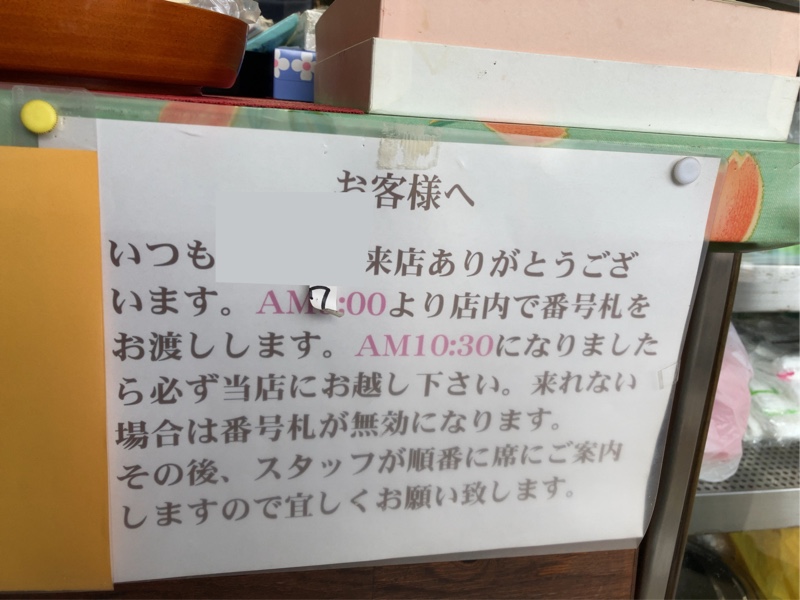 お客様へ
いつも 来店ありがとうござ
います。AM7:00より店内で番号札を
お渡しします。AM10:30になりました
ら必ず当店にお越し下さい。来れない
場合は番号札が無効になります。
その後、スタッフが順番に席にご案内
しますので宜しくお願い致します。